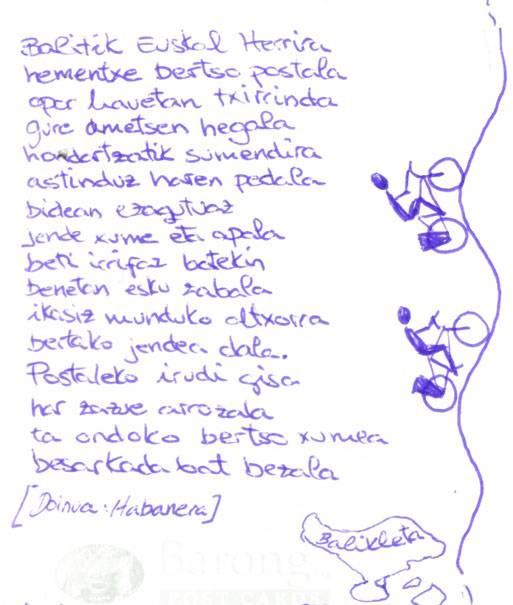 Balitik Euskal Herrira
hementxe bertso postala
opor hauetan txirrinda
gure ametsen hegala
hondartzatik sumendira
astinduz haren pedala
bidean ezagutuaz
jende xume eta apala
beti irrifaz batekin
benetan esku zabala
ikasiz munduko altxorra
bertako jendea dala.
Postaleko irudi gisa
har zazue arrozala
ta ondoko bertso xumea
besarkada bat bezala
[Doinua: Habanera]
Balikleta
Barong
POST CARDS